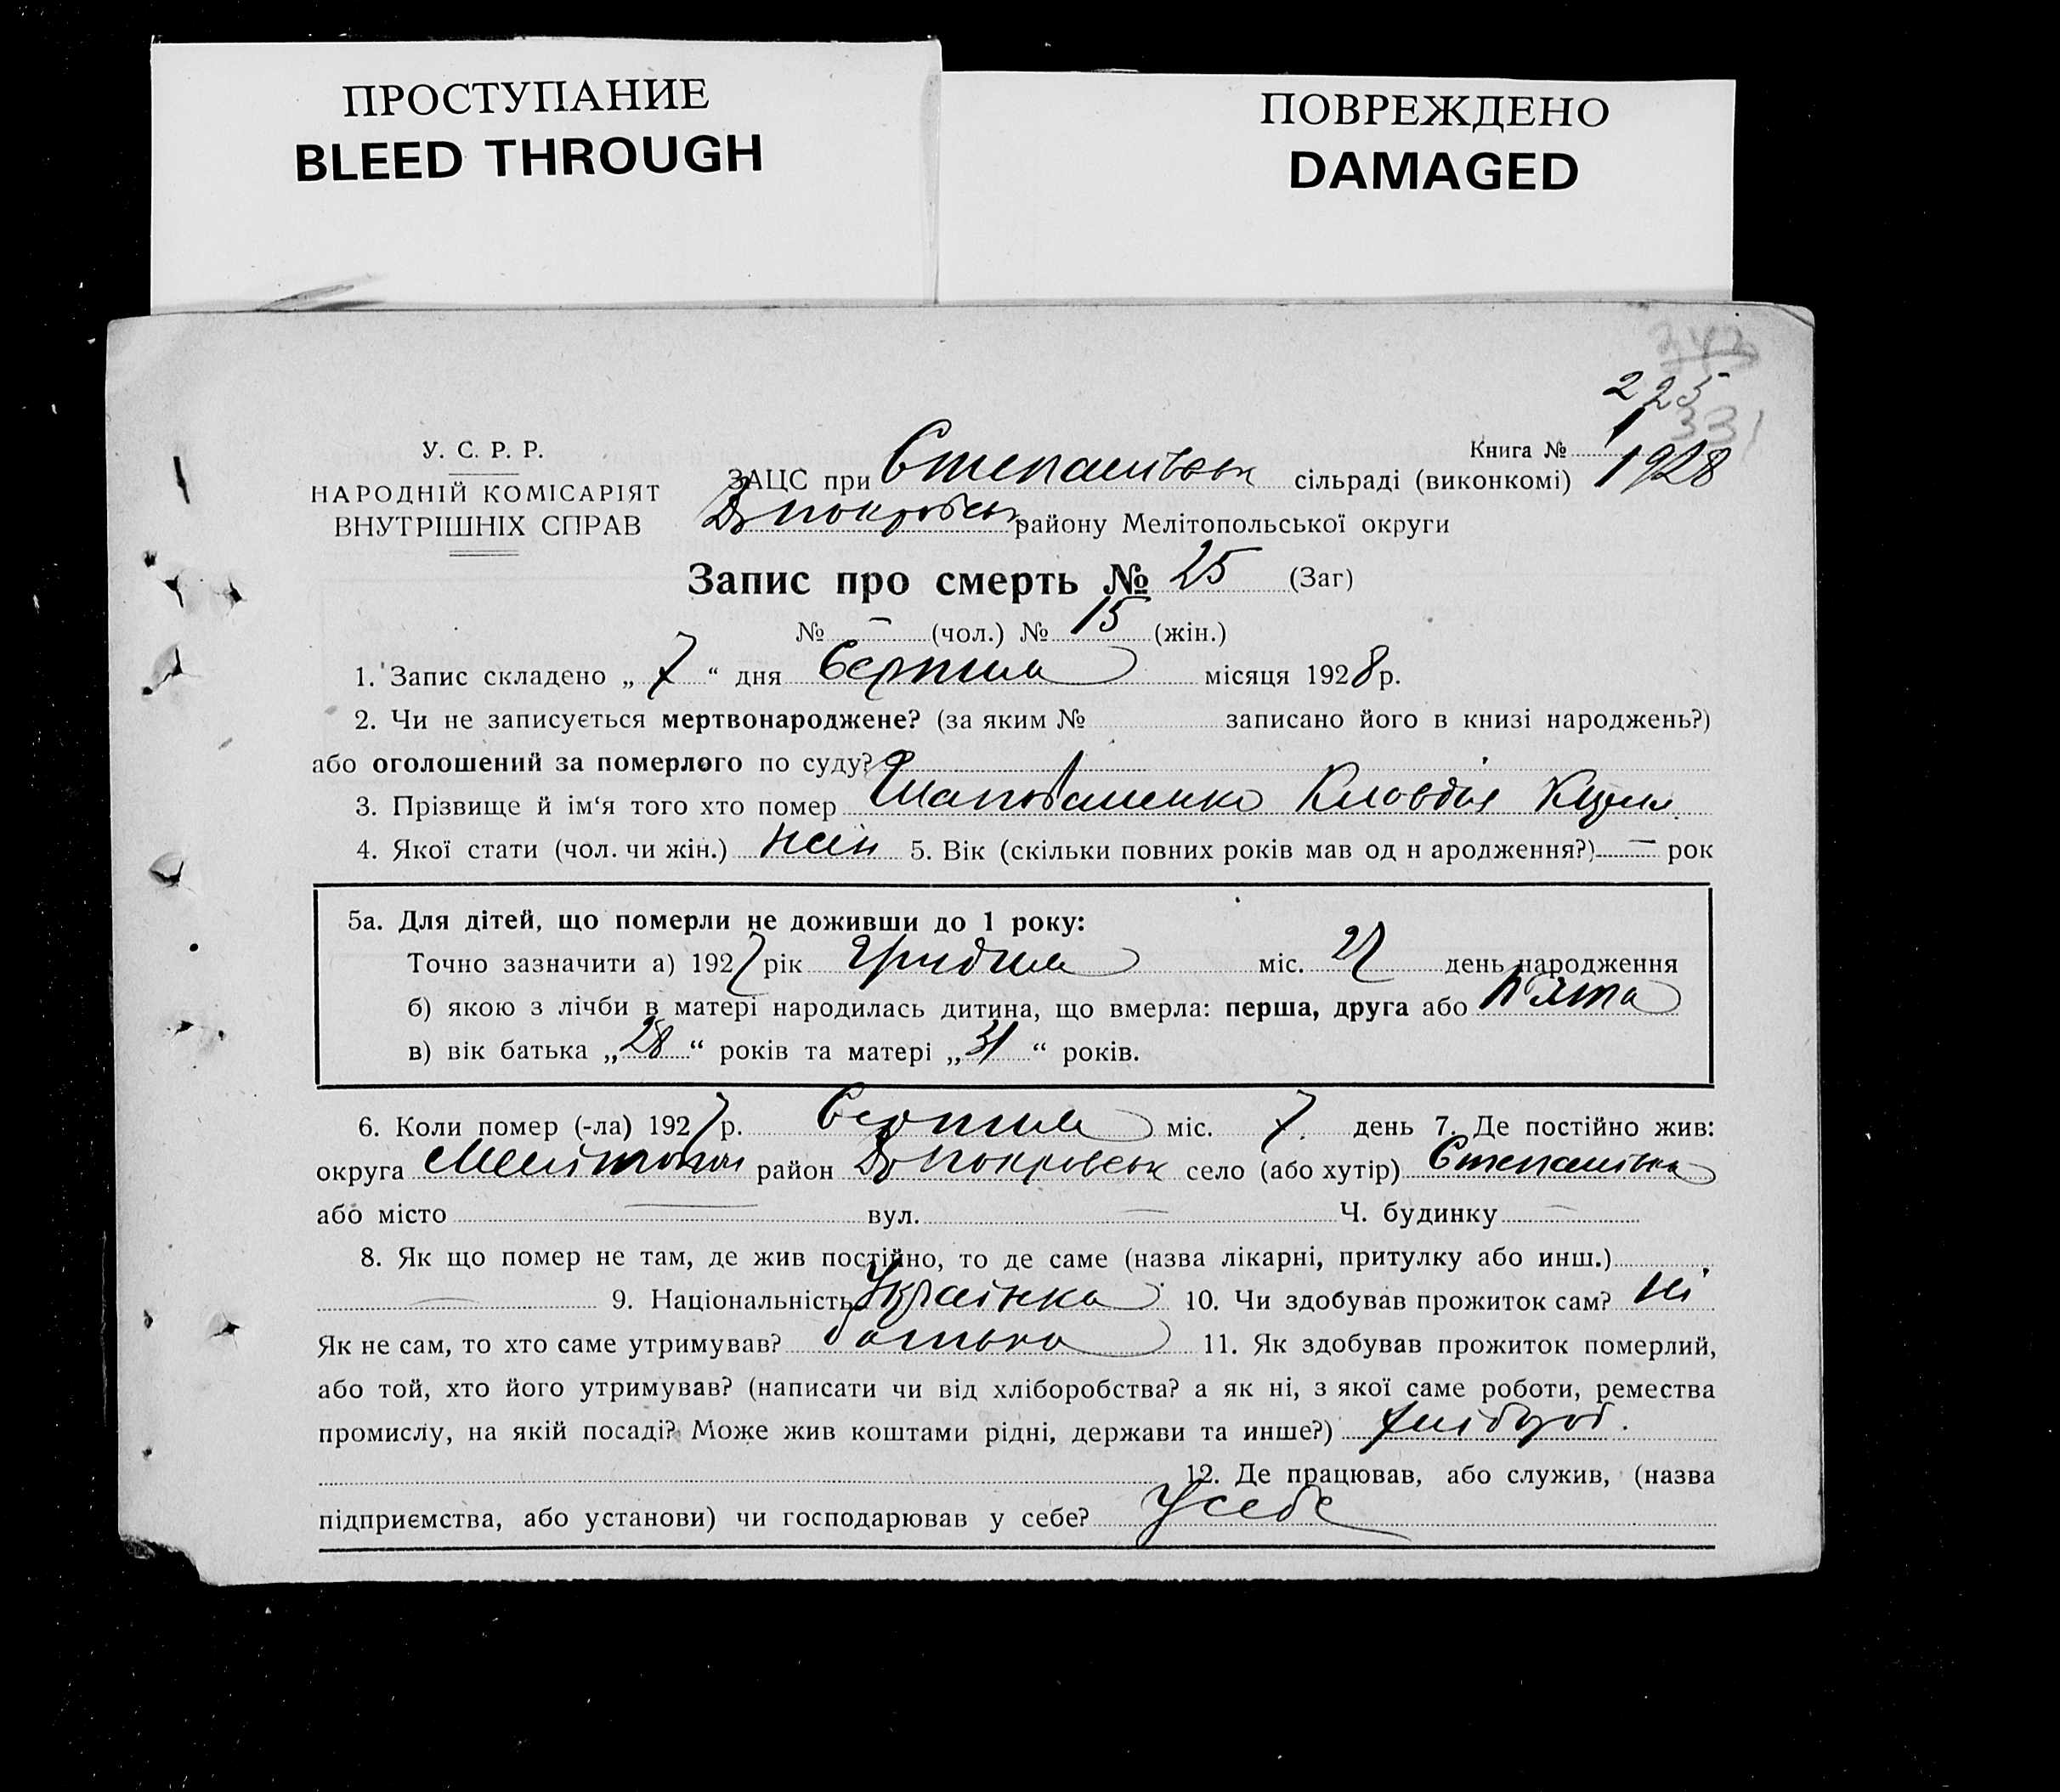 ПРОСТУПАНИЕ
BLEED THROUGH
ПОВРЕЖДЕНО
DAMAGED
225
331
У. С. Р. Р.
НАРОДНІЙ КОМІСАРІЯТ
ВНУТРІШНІХ СПРАВ
Книга № 1
ЗАЦС при Степанівськ сільраді (виконкомі) 1928
Др Покровськ району Мелітопольської округи
Запис про смерть № 25 (Заг)
№ – (чол.) № 15 (жін.)
1. Запис складено „ 7 “ дня Серпня місяця 1928 р.
2. Чи не записується мертвонароджене? (за яким № записано його в книзі народжень?)
або оголошений за померлого по суду?
3. Прізвище й ім‘я того хто помер Шаповаленко Кловдія
4. Якої стати (чол. чи жін.) жін 5. Вік (скільки повних років мав од н ародження?) – рок
5а. Для дітей, що померли не доживши до 1 року:
Точно зазначити а) 1927 рік Грудня міс. 27 день народження
б) якою з лічби в матері народилась дитина, що вмерла: перша, друга або п'ята
в) вік батька „28“ років та матері „31“ років.
6. Коли помер (-ла) 1927 р. Серпня міс. 7. день 7. Де постійно жив:
округа Мелітопол район Др Покровськ село (або хутір) Степанівка
або місто — вул. — Ч. будинку —
8. Як що помер не там, де жив постійно, то де саме (назва лікарні, притулку або инш.)
— 9. Національність Українка 10. Чи здобував прожиток сам? Ні
Як не сам, то хто саме утримував? батько 11. Як здобував прожиток померлий,
або той, хто його утримував? (написати чи від хліборобства? а як ні, з якої саме роботи, ремества
промислу, на якій посаді? Може жив коштами рідні, держави та инше?) хлібороб.
12. Де працював, або служив, (назва
підприємства, або установи) чи господарював у себе? У себе